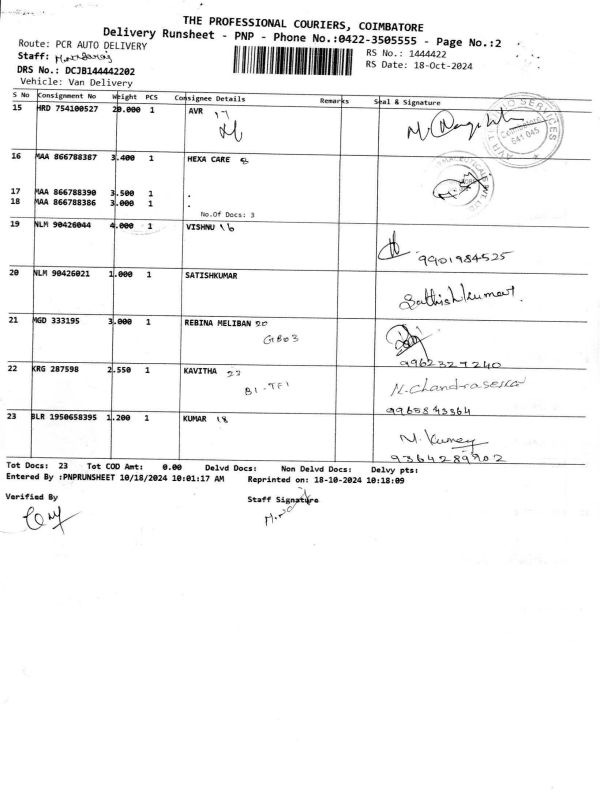 THE PROFESSIONAL COURIERS, COIMBATORE
Delivery Runsheet - PNP - Phone No.:0422-3505555 - Page No.:2
Route: PCR AUTO DELIVERY
RS No.: 1444422
Staff:
RS Date: 18-Oct-2024
DRS No.: DCJB144442202
Vehicle: Van Delivery
S No Consignment No Weight PCS Consignee Details Remarks Seal & Signature
15 HRD 754100527 20.000 1 AVR 17
641 045
16 MAA 866788387 3.400 1 HEXA CARE 8
17 MAA 866788390 3.500 1 .
18 MAA 866788386 3.000 1 .
No.Of Docs: 3
19 NLM 90426044 4.000 1 VISHNU 16
9901984525
20 NLM 90426021 1.000 1 SATISHKUMAR
Sathishkumar
21 MGD 333195 3.000 1 REBINA MELIBAN 20
GB03
9962327240
22 KRG 287598 2.550 1 KAVITHA 22
B1-TF1
N.Chandrasekar
9965843364
23 BLR 1950658395 1.200 1 KUMAR 18
9364289902
Tot Docs: 23 Tot COD Amt: 0.00 Delvd Docs: Non Delvd Docs: Delvy pts:
Entered By :PNPRUNSHEET 10/18/2024 10:01:17 AM Reprinted on: 18-10-2024 10:18:09
Verified By
Staff Signature